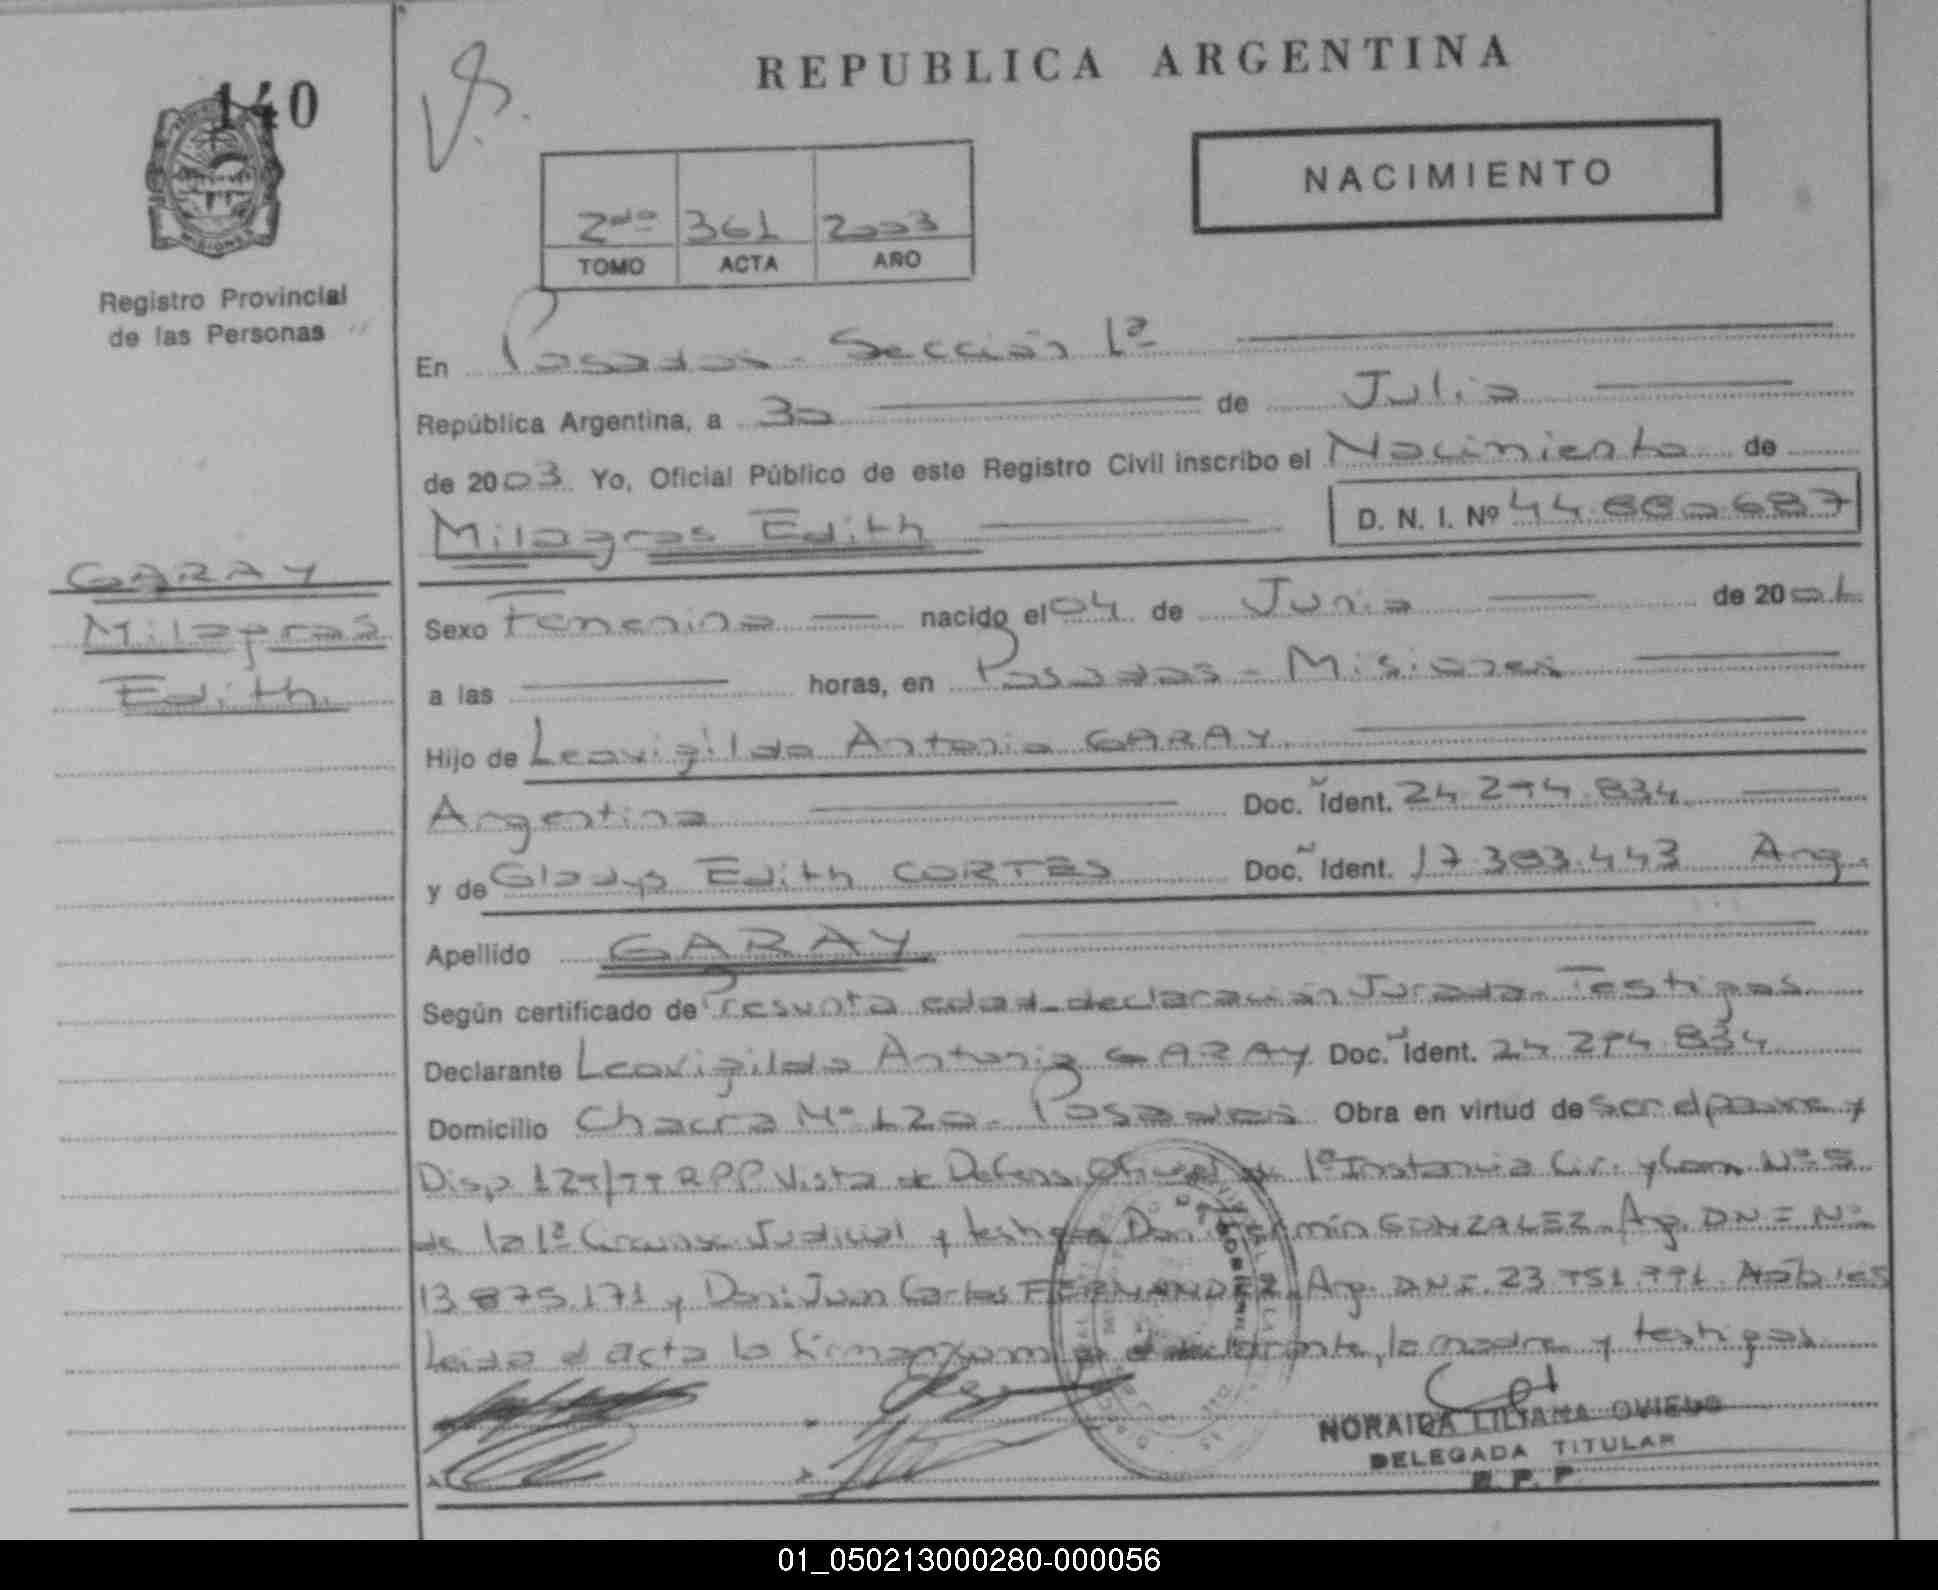 REPUBLICA ARGENTINA
140
MISIONES
Registro Provincial
de las Personas
NACIMIENTO
2do 361 2003
TOMO ACTA AÑO
En Posadas - Sección 1ª
República Argentina, a 30 de Julio
de 2003 Yo, Oficial Público de este Registro Civil inscribo el Nacimiento de
Milagros Edith D. N. I. Nº 44.880.687
GARAY
Milagros
Edith
Sexo Femenino nacido el 04 de Junio de 2001
a las horas, en Posadas - Misiones
Hijo de Leovigildo Antonio GARAY
Argentina Doc. Ident. 24.294.834
y de Gladys Edith CORTES Doc. Ident. 17.383.443 Arg.
Apellido GARAY
Según certificado de Presunta edad - declaración Jurada - Testigos
Declarante Leovigildo Antonio GARAY Doc. Ident. 24.294.834
Domicilio Chacra Nº 120 - Posadas Obra en virtud de ser el padre y
Disp. 129/99 RPP Vista de Defens. Oficial de 1ª Instancia Civ. y Com. Nº 5
de la 1ª Circunsc. Judicial y testigos Don: Fermín GONZALEZ - Arg. DNI Nº
13.875.171 y Don: Juan Carlos FERNANDEZ - Arg. DNI. 23.951.991. Hábiles
Leida el acta la firman el declarante, la madre y testigos
NORAIDA LILIANA OVIEDO
DELEGADA TITULAR
R. P. P.
01_050213000280-000056